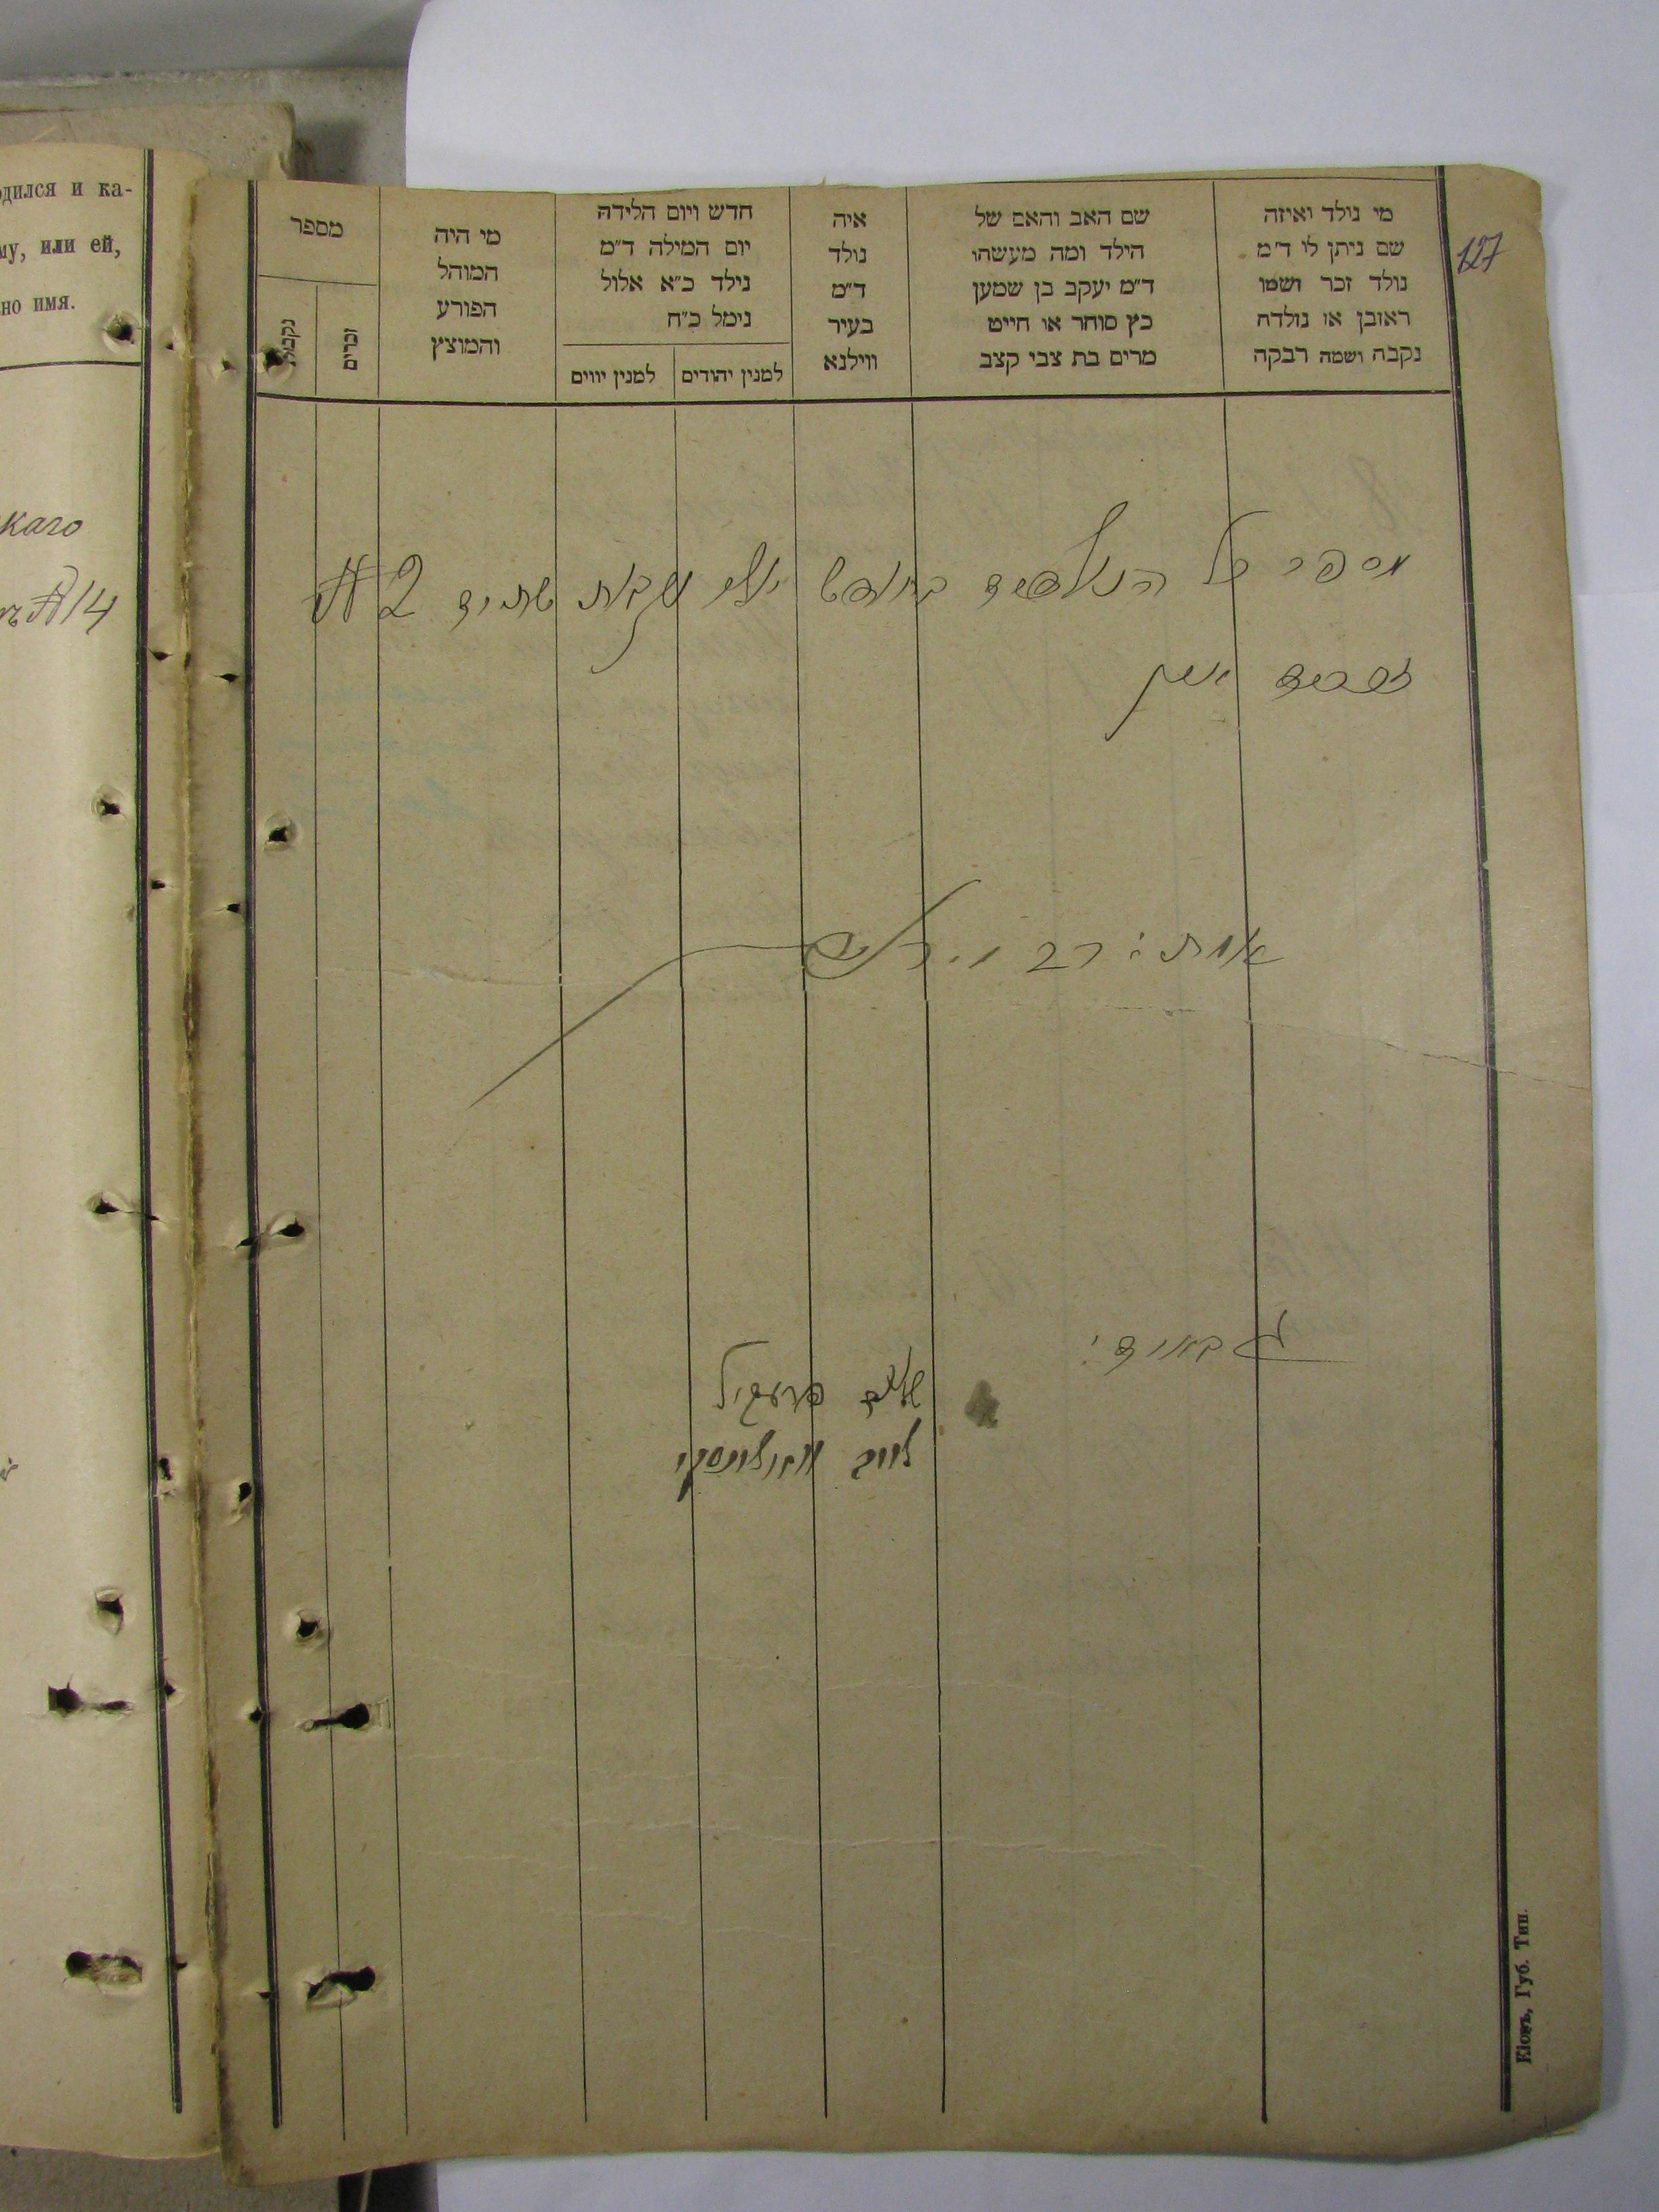 127
מי נולד ואיזה
שם ניתן לו ד״מ
נולד זכר ושמו
ראובן או נולדה
נקבה ושמה רבקה
שם האב והאם של
הילד ומה מעשהו
ד״מ יעקב בן שמען
כץ סוחר או חייט
מרים בת צבי קצב
איה
נולד
ד״מ
בעיר
ווילנא
חדש ויום הלידה
יום המילה ד״מ
נילד כ״א אלול
נימל כ״ח
למנין יהודים
למנין יווים
מי היה
המוהל
הפורע
והמוצץ
מספר
זכרים
נקבות
מספר כל הנולדים בחודש יולי נקבות שתים № 2
זכרים אין
אות: רב
גבאים:
שלום
Кіевъ, Губ. Тип.
одился и ка-
му, или ей,
но имя.
каго
№ 14